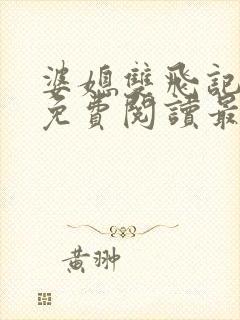 婆媳雙飛記
免費閱讀最
黃翀